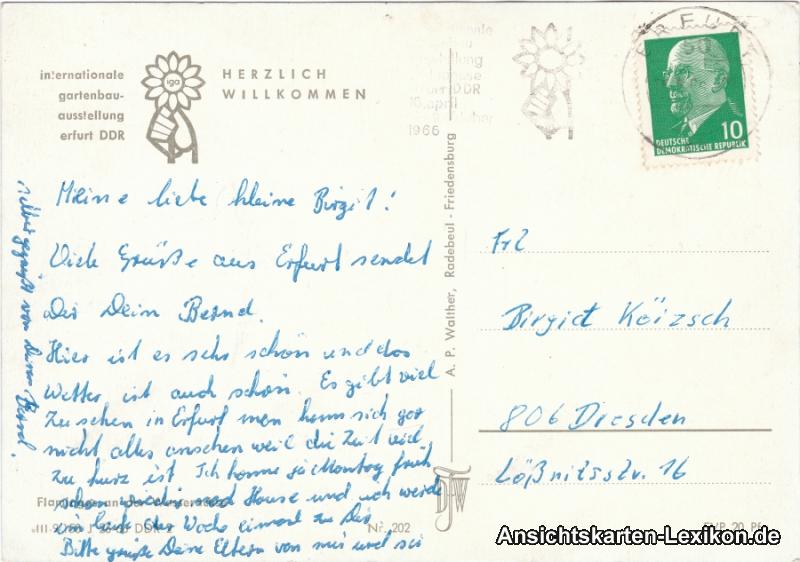 internationale
gartenbau-
ausstellung
erfurt DDR
iga
HERZLICH
WILLKOMMEN
1966
ERFURT
DEUTSCHE
DEMOKRATISCHE REPUBLIK
10
Meine liebe kleine Birgit!
Viele Grüße aus Erfurt sendet
Dir Dein Bernd.
Hier ist es sehr schön und das
Wetter ist auch schön. Es gibt viel
zu sehen in Erfurt men kann sich gar
nicht alles ansehen weil die Zeit viel
zu kurz ist. Ich komme ja Montag früh
schon wieder nach Hause und ich werde
die Woche einmal zu Dir
Bitte grüße Deine Eltern von mir und sei
gegrüßt von Deinem Bernd.
A. P. Walther, Radebeul - Friedensburg
Frl
Birgit Köizsch
806 Dresden
Lößnitzstr. 16
Nr. 202
EVP 20 Pf
Ansichtskarten-Lexikon.de